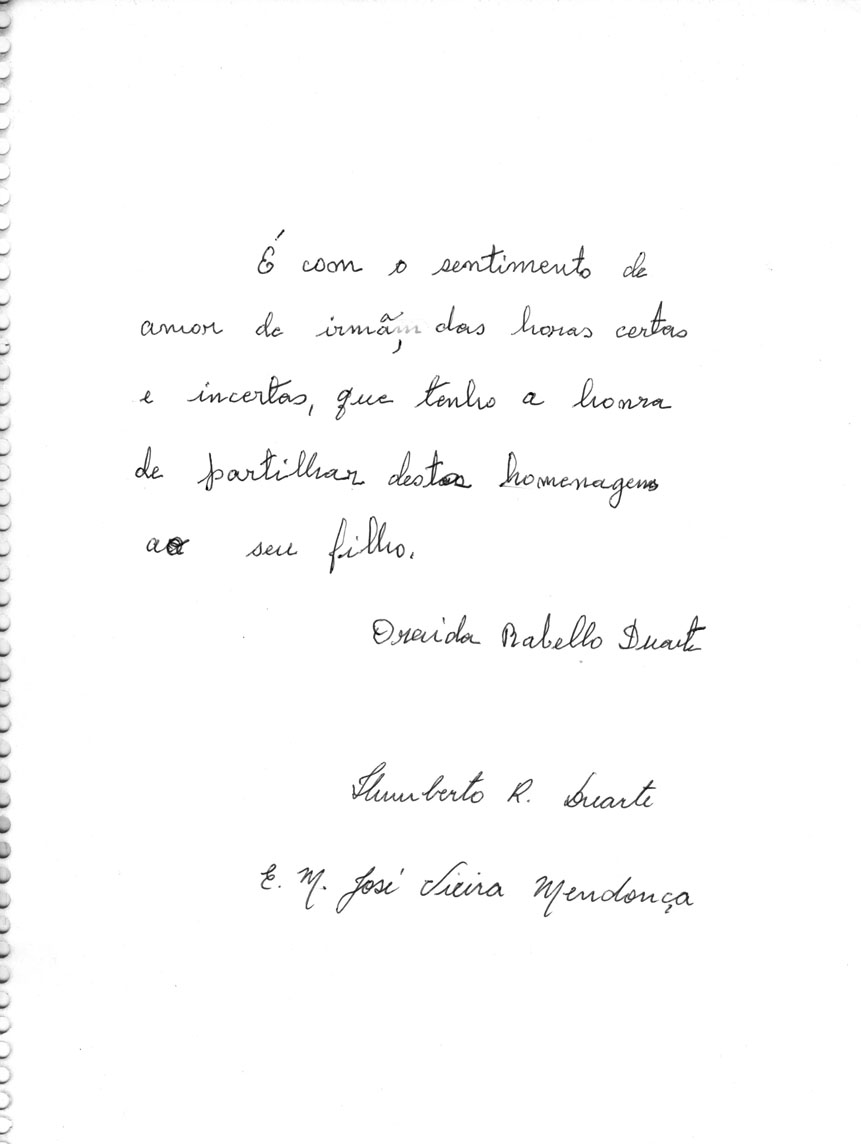 É com o sentimento de
amor de irmã, das horas certas
e incertas, que tenho a honra
de partilhar destas homenagens
ao seu filho.
Oraida Rabello Duarte
Humberto R. Duarte
E. M. José Vieira Mendonça